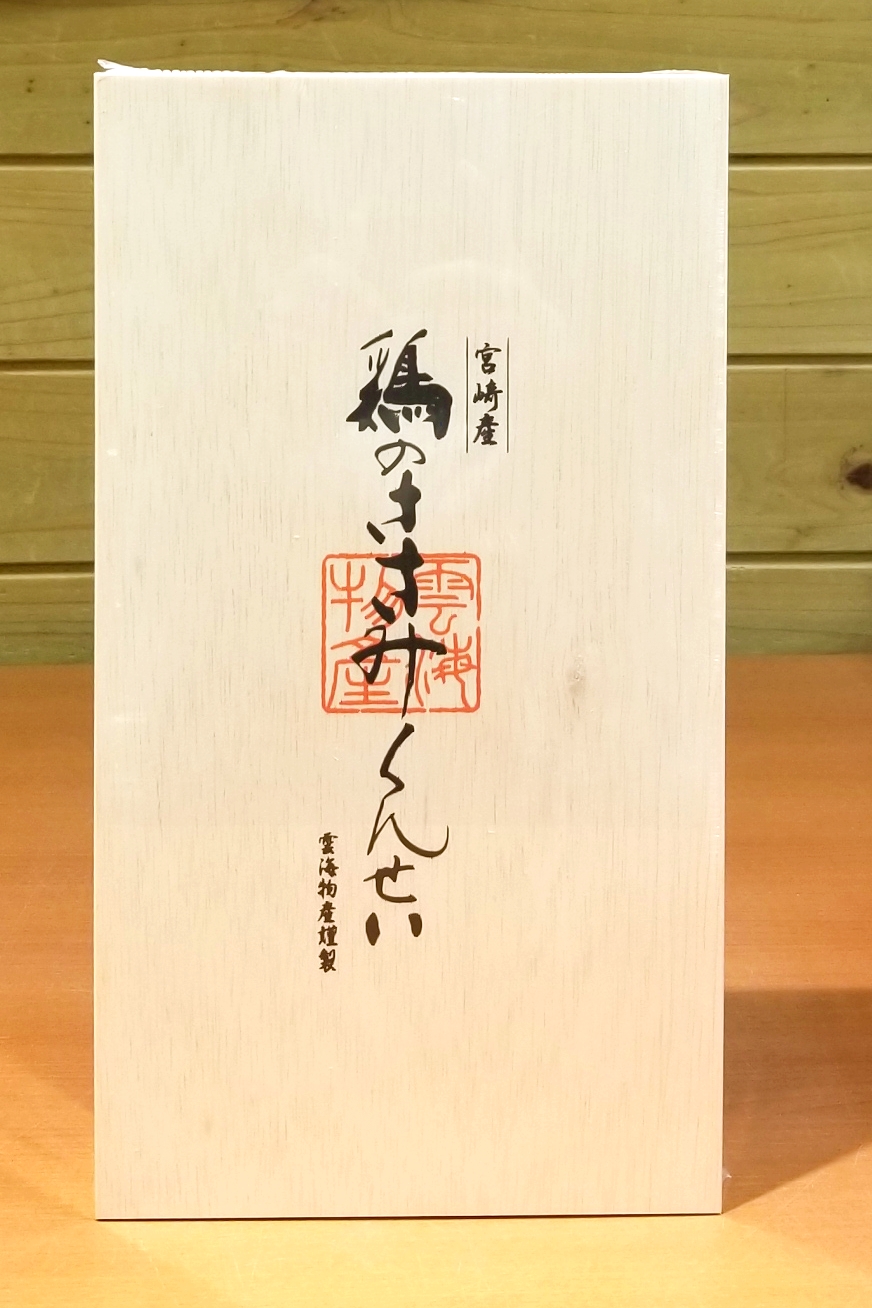 宮崎産
鶏のささみくんせい
雲海物産
雲海物産謹製